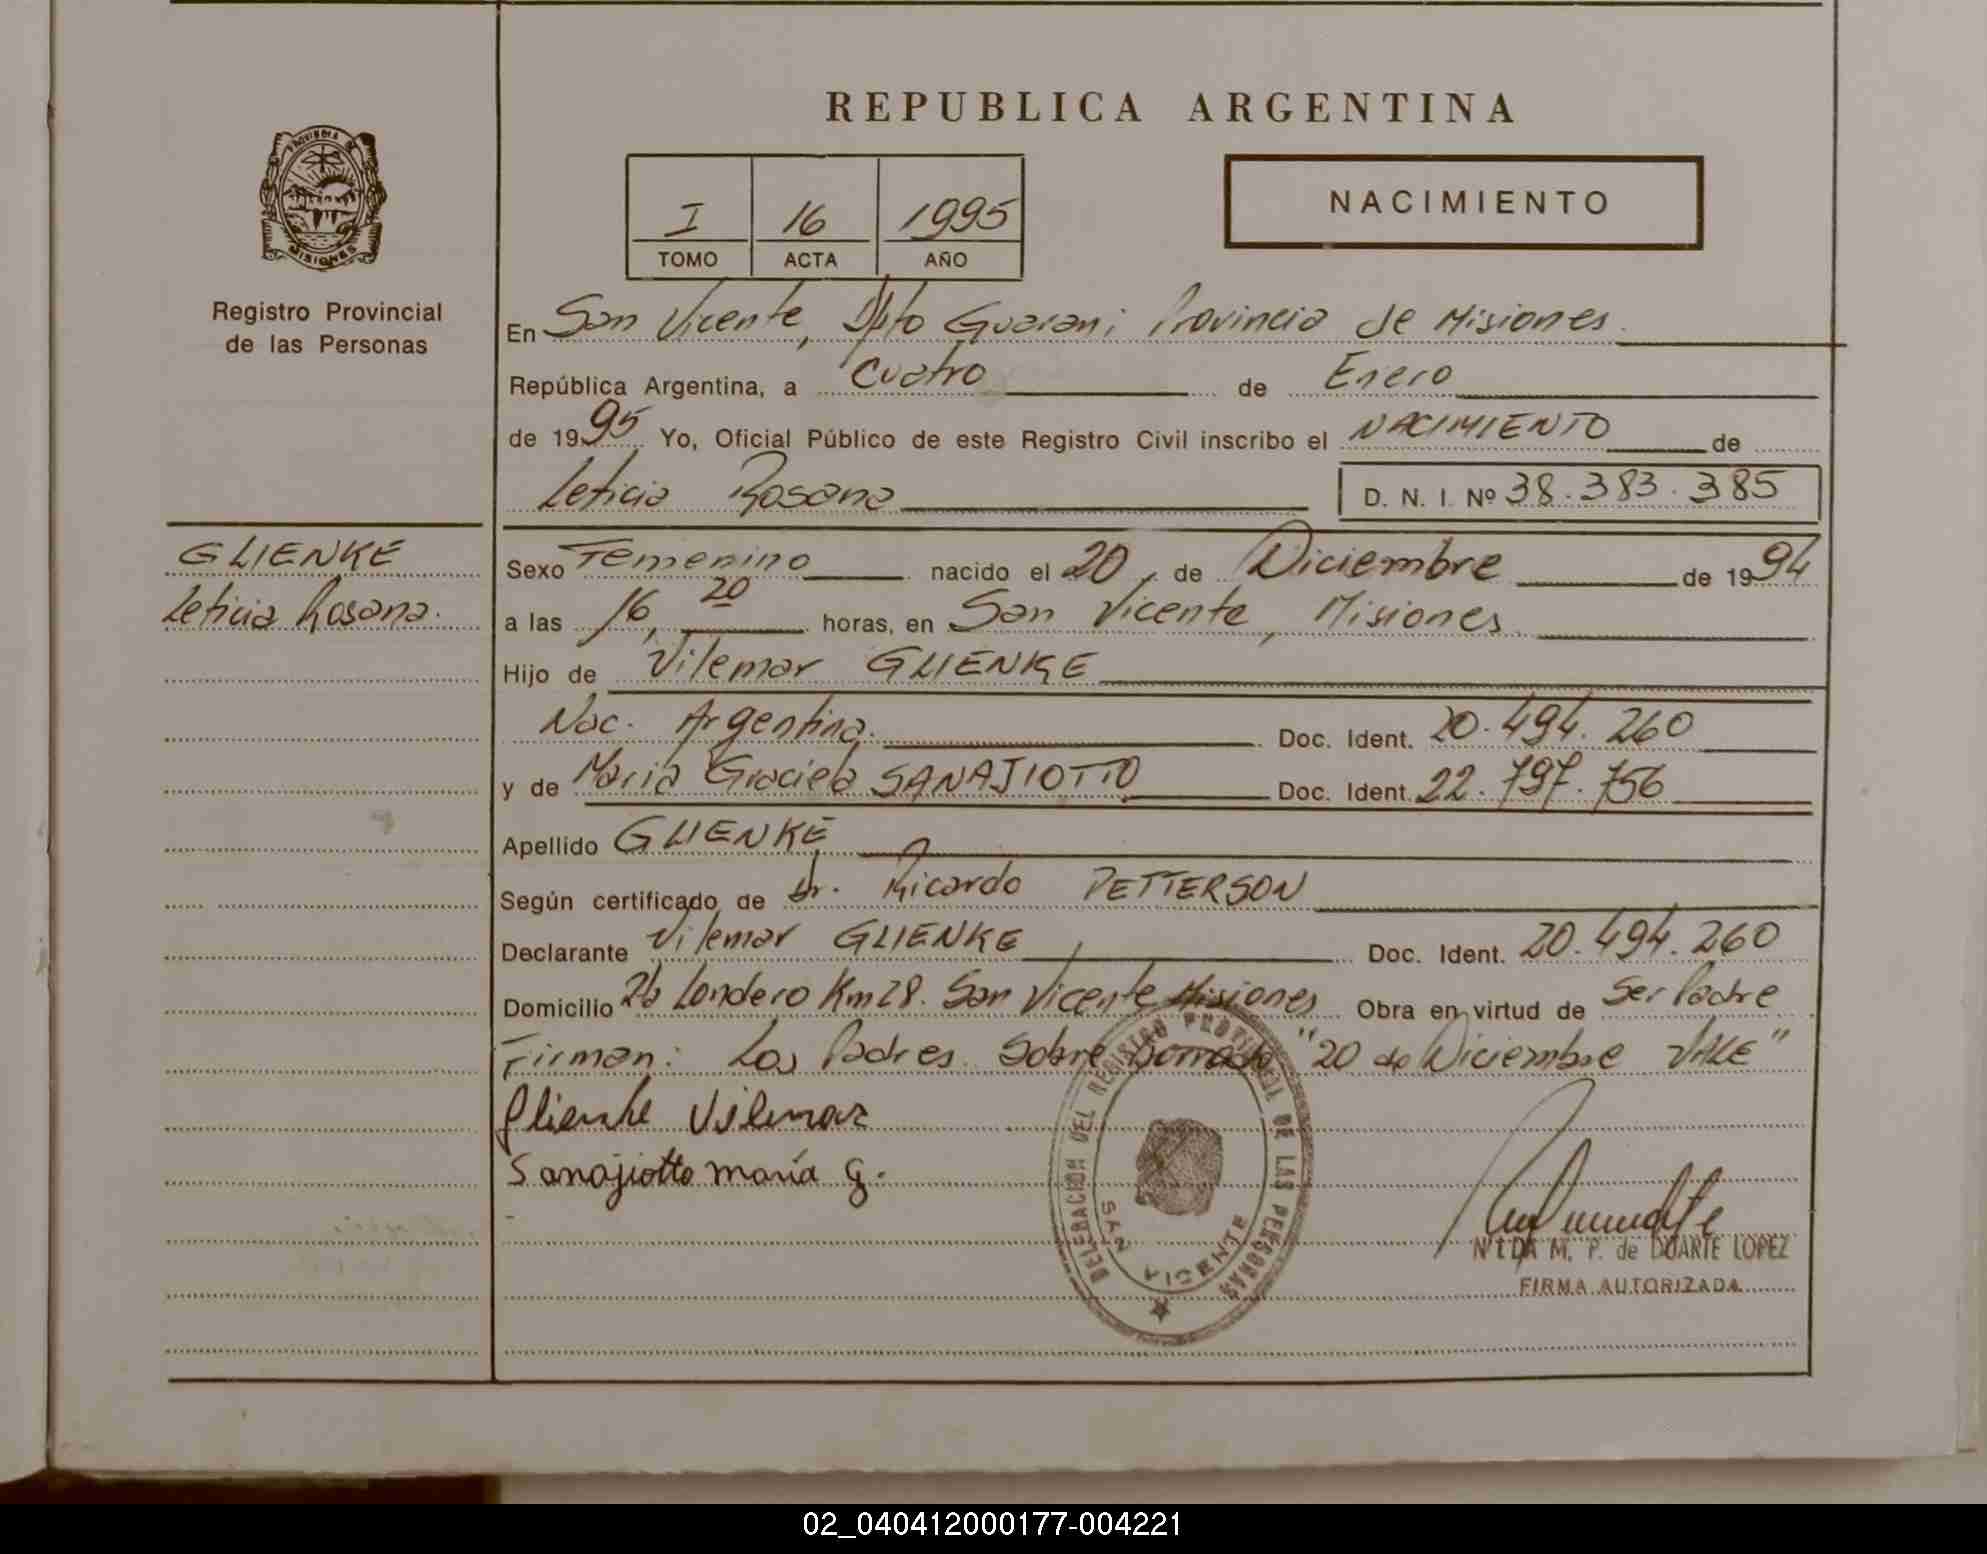 REPUBLICA ARGENTINA
PROVINCIA DE
MISIONES
Registro Provincial
de las Personas
I 16 1995
TOMO ACTA AÑO
NACIMIENTO
En San Vicente, Dpto Guarani Provincia de Misiones
República Argentina, a Cuatro de Enero
de 1995 Yo, Oficial Público de este Registro Civil inscribo el NACIMIENTO de
Leticia Rosana D. N. I. Nº 38.383.385
GLIENKE
Leticia Rosana.
Sexo Femenino nacido el 20 de Diciembre de 1994
a las 16, 20 horas, en San Vicente, Misiones
Hijo de Vilemar GLIENKE
Nac. Argentina. Doc. Ident. 20.494.260
y de Maria Graciela SANAJIOTTO Doc. Ident. 22.797.756
Apellido GLIENKE
Según certificado de Dr. Ricardo PETTERSON
Declarante Vilemar GLIENKE Doc. Ident. 20.494.260
Domicilio Londero Km 28. San Vicente Misiones Obra en virtud de Ser Padre
Firman: Los Padres. Sobre borrado "20 de Diciembre VALE"
Glienke Vilemar
Sanajiotto maría G.
DELEGACION DEL REGISTRO PROVINCIAL DE LAS PERSONAS
SAN VICENTE
NILDA M. P. de DUARTE LOPEZ
FIRMA AUTORIZADA
02_040412000177-004221